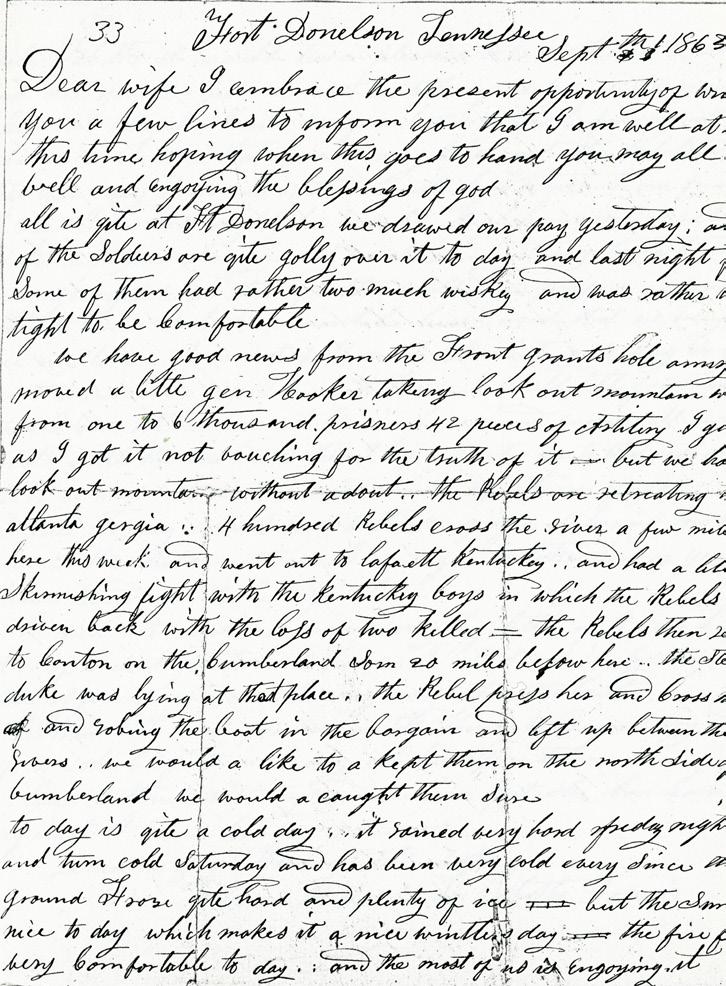 33 Fort Donelson Tennessee
Sept th 1863
Dear wife I embrace the present opportunity of
you a few lines to inform you that I am well at
this time hoping when this goes to hand you may all
well and engoying the blessings of god
all is qite at Ft Donelson we drawed our pay yesterday;
of the Soldiers are qite golly over it to day and last night
Some of them had rather two much wiskey and was rather
tight to be Comfortable
we have good news from the Front grants hole army
moved a litte gen Hooker taking look out mountain
from one to 6 thousand prisners 42 pieces of Artilery I
as I got it not vouching for the truth of it — but we
look out mountain without adout .. the Rebels are retreating
atlanta gergia .. 4 hundred Rebels cross the river a few
here this week and went out to lafaett Kentuckey .. and had a
Skirmishing fight with the Kentuckey boys in which the Rebels
driven back with the loss of two killed = the Rebels then
to Canton on the Cumberland Som 20 miles below here .. the
duke was lying at that place .. the Rebel press her and Cross
and robing the boat in the bargain and left up between the
rivers .. we would a like to a kept them on the north Side
Cumberland we would a caught them Sure
to day is qite a cold day .. it rained very hard friday
and turn cold Saturday and has been very cold every Since
ground Froze qite hard and plenty of ice == but the
nice to day which makes it a nice winters day == the fire
very Comfortable to day .: and the most of us is Engoying it